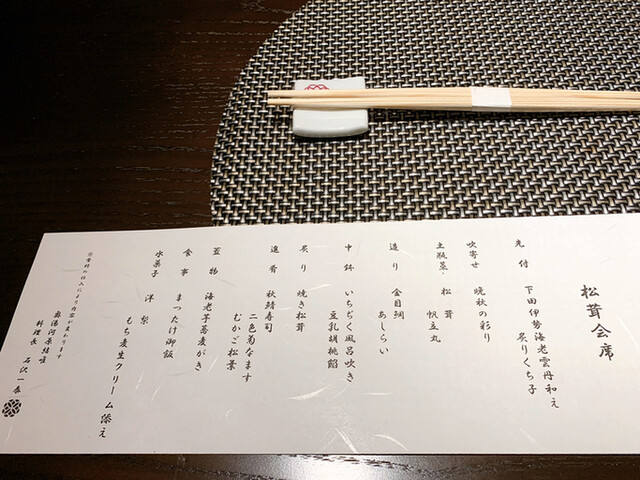 松茸会席
先付　下田伊勢海老雲丹和え
炙りくち子
吹寄せ　晩秋の彩り
土瓶蒸　松茸
帆立丸
造り　金目鯛
あしらい
中鉢　いちぢく風呂吹き
豆乳胡桃餡
炙り　焼き松茸
進肴　秋鯖寿司
二色菊なます
むかご松葉
蓋物　海老芋蕎麦がき
食事　まつたけ御飯
水菓子　洋梨
もち麦生クリーム添え
※食材の仕入により内容が変わります
奥湯河原結唯
料理長　石沢一泰